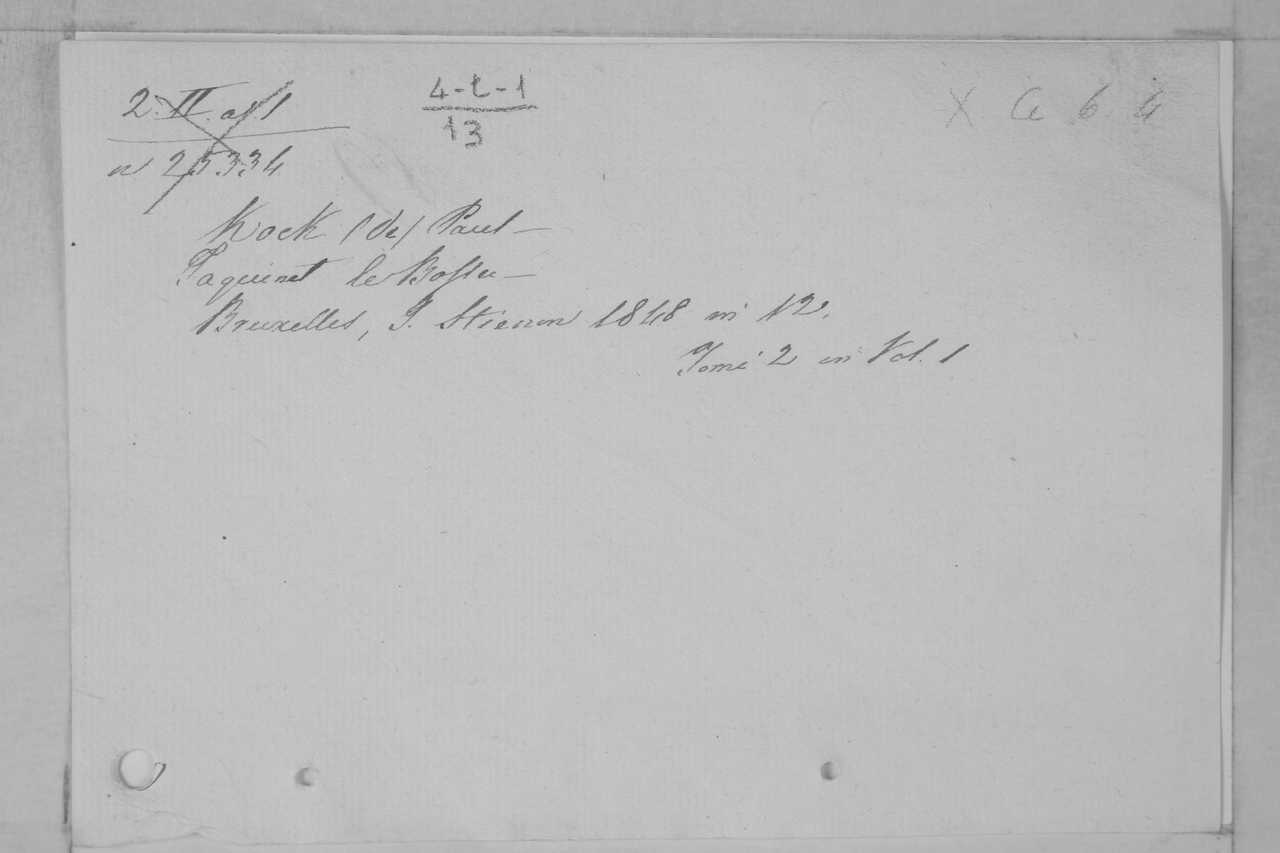 2. II. a. 1
n 25334
4-L-1
13
X Ce 6. 4
Kock (de) Paul —
Taquinet le Bossu —
Bruxelles, J. Stienon 1848 in 12.
Tomi 2 in Vol. 1